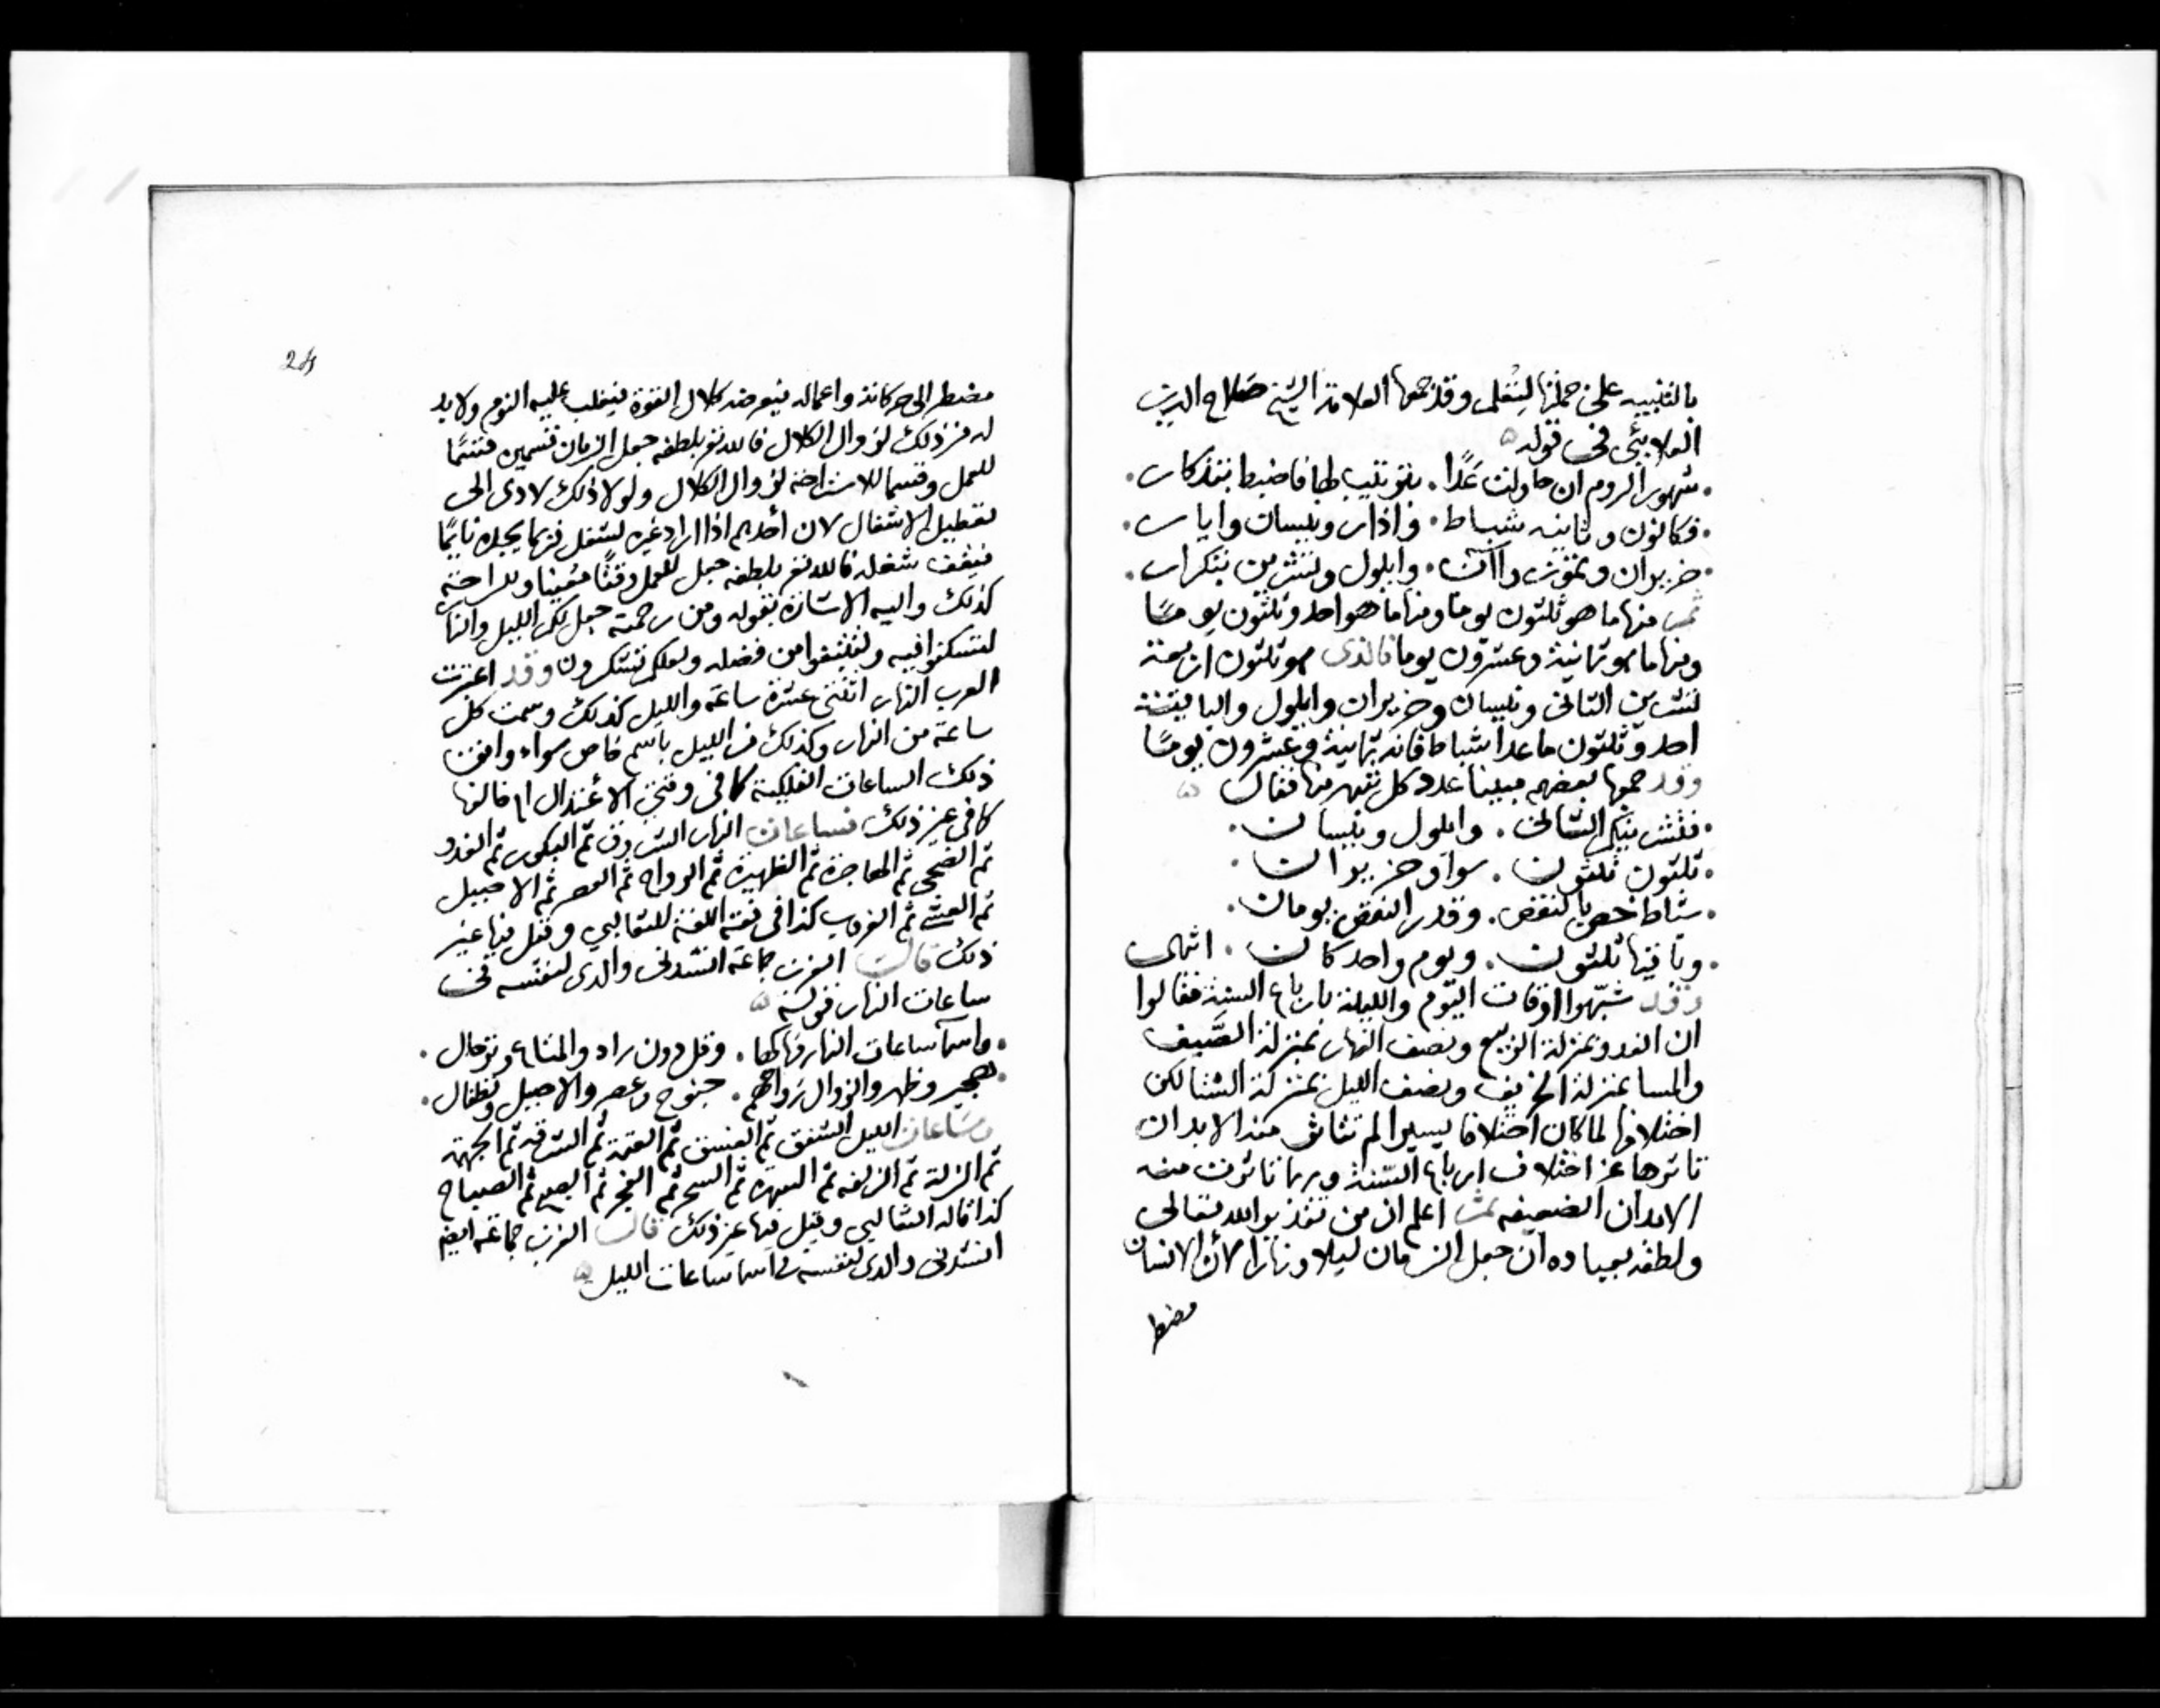 بالتنبيه على جملتها لتعلم وقد جمعها العلامة الشيخ صلاح الدين
العلايئي في قوله
. شهور الروم ان حاولت عدا . بترتيب لها فاضبط بتذكار .
. فكانون وثانيه شباط . واذار ونيسان وايار .
. حزيران وتموز واآب . وايلول وتشرين بتكرار .
ثم منها ما هو ثلثون يوما ومنها ما هو احد وثلثون يوما
ومنها ما هو ثمانية وعشرون يوما فالذى هو ثلثون اربعة
تشرين الثاني ونيسان وحزيران وايلول والباقية
احد وثلثون ما عدا شباط فانه ثمانية وعشرون يوما
وقد جمعها بعضهم مبينا عدد كل شهر منها فقال
. فتشرينكم الثاني . وايلول ونيسان .
. ثلثون ثلثون . سواء وحزيران .
. شباط خص بالنقص . وقدر النقص يومان .
. وباقيها ثلثون . ويوم واحد كان . انتهى
وقد شبّهوا اوقات اليوم والليلة بارباع السنة فقالوا
ان الغدو بمنزلة الربيع ونصف النهار بمنزلة الصَّيف
والمسا بمنزلة الخريف ونصف الليل بمنزلة الشتا لكن
اختلافها لما كان اختلافا يسيرا لم تتاثر منه الابدان
تاثرها عن اختلاف ارباع السّنة وربما تاثرت منه
الابدان الضعيفه ثم اعلم ان من تقدير الله تعالى
ولطفه بعباده ان جعل الزمان ليلا ونهارا لان الانسان
مضطر
24
مضطر الى حركاته واعماله فيعرضه كلال القوة فيغلب عليه النوم ولا بد
له من ذلك لزوال الكلال فالله تع بلطفه جعل الزمان قسمين قسمًا
للعمل وقسما للاستراحة لزوال الكلال ولولا ذلك لادى الى
تعطيل الاشغال لان احدهم اذا اراد غيره لشغل فربما يجده نايمًا
فيقف شغله فالله تع بلطفه جعل للعمل وقتًا معينا وللراحة
كذلك واليه الاشارة بقوله ومن رحمته جعل لكم الليل والنهار
لتسكنوا فيه ولتبتغوا من فضله ولعلكم تشكرون وقد اعتبرت
العرب النهار اثنتي عشرة ساعة والليل كذلك وسمت كل
ساعة من النهار وكذلك من الليل باسم خاص سواء وافقت
ذلك الساعات الفلكية كما في وقتي الاعتدال ام خالفها
كما في غير ذلك فساعات النهار الشروق ثم البكور ثم الغدو
ثم الضحى ثم الهاجرة ثم الظهيرة ثم الرواح ثم العصر ثم الاصيل
ثم العشي ثم الغروب كذا في فقه اللغة للثعالبي وقيل فيها غير
ذلك قال العز بن جماعة انشدني والدى لنفسه في
ساعات النهار قوله
. واسما ساعات النهار فهاكها . وقل دون راد والمتاع وترحال .
. هجير وظهر والزوال رواحهم . جنوح وعصر والاصيل وتطفال .
وساعات الليل الشفق ثم الغسق ثم العتمة ثم السدفه ثم الجهمة
ثم الزلة ثم الزلفه ثم البهرة ثم السحر ثم الفجر ثم الصبح ثم الصباح
كذا قاله الثعالبي وقيل فيها غير ذلك قال العز بن جماعة ايضا
انشدني والدى لنفسه في اسما ساعات الليل